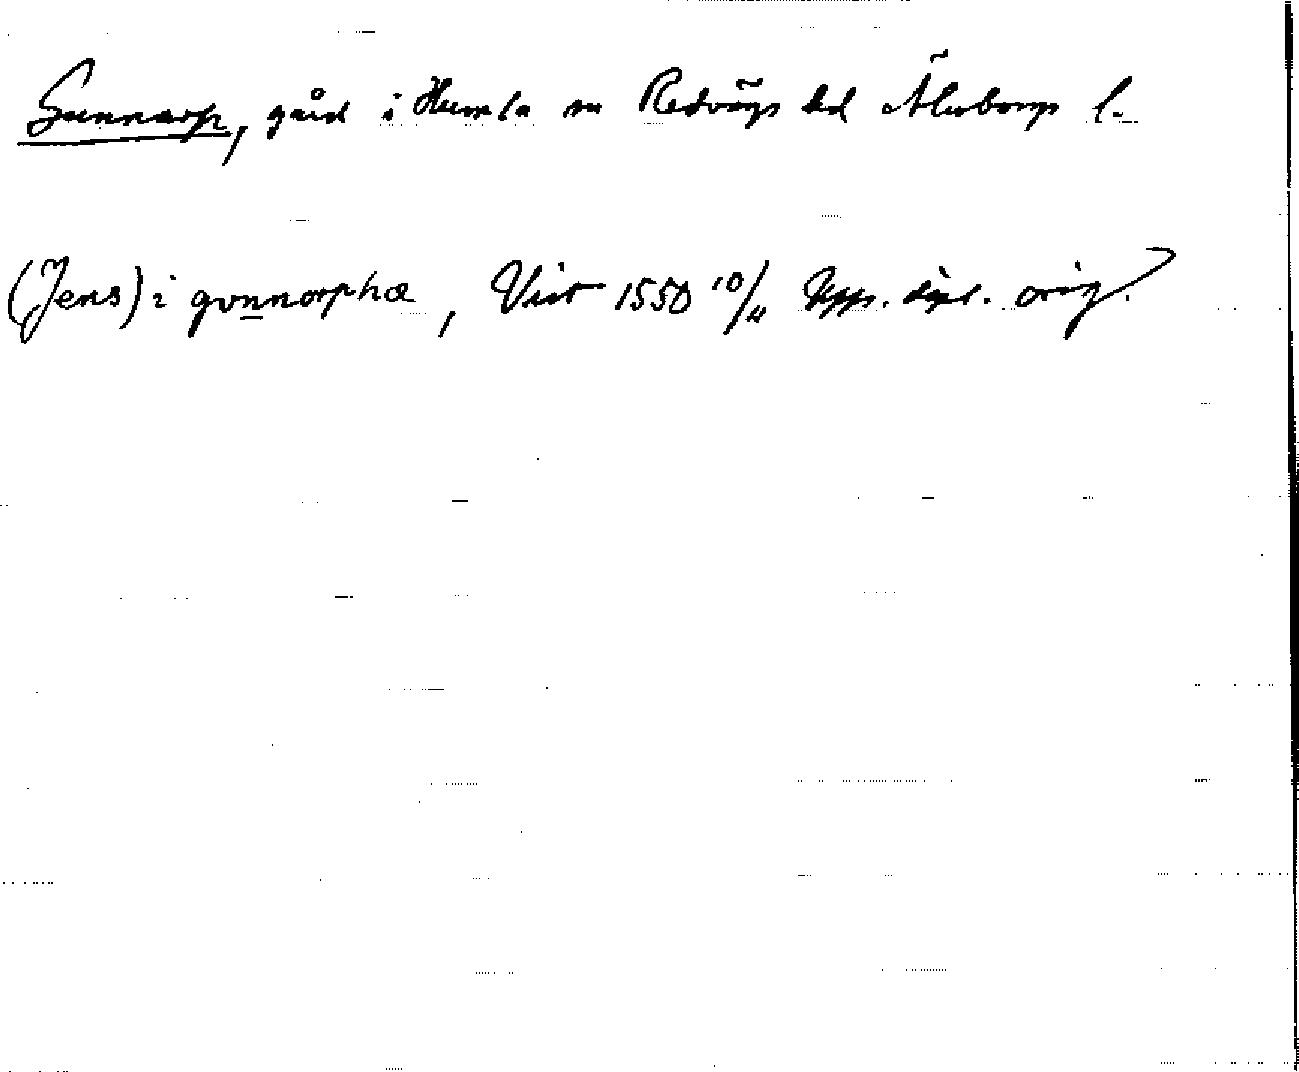 Gunnarp, gård i Humla sn Redvägs hd Älvsborgs l.
(Jens) i gvnnorphæ, Vist 1550 10/11 Upp. dipl. orig.